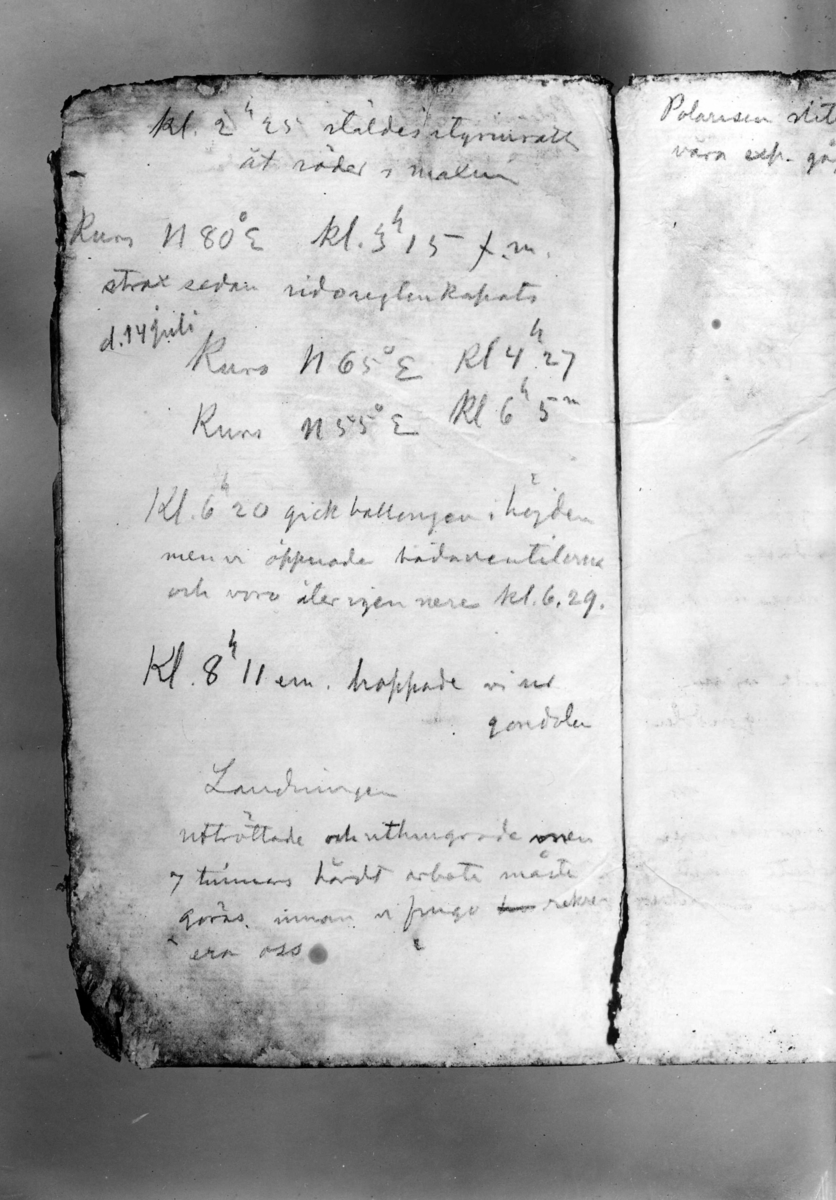 kl. 2 h 25 ställdes styrinrätt
åt söder s malen
Kurs N 80° E kl. 3 h 15 f.m.
strax sedan sidoseglen kapats
d. 14 juli
Kurs N 65° E kl 4 h 27
Kurs N 55° E kl 6 h 5 m
Kl. 6 h 20 gick ballongen i höjden
men vi öppnade båda ventilerna
och voro åter igen nere kl. 6.29.
Kl. 8 h 11 em. hoppade vi ur
gondolen
Landningen
uttröttade och uthungrade men
7 timmars hårdt arbete måste
göras innan vi fingo rekre
era oss
Polarisen slit
våra exp.